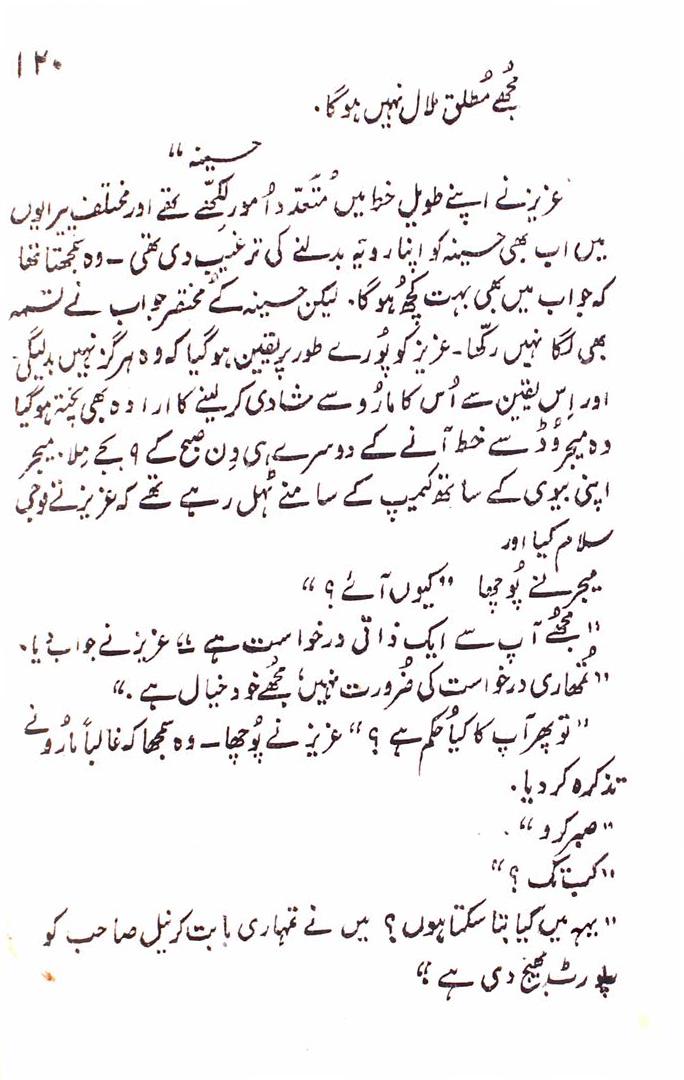 ۱۲۰
مُجھے مُطلق ملال نہیں ہوگا۔
حسینہ “
عزیز نے اپنے طویل خط میں مُتعدّد اُمور لکھّے تھے اور مختلف پیرایوں
میں اب بھی حسینہ کو اپنا رویّہ بدلنے کی ترغیب دی تھی ۔ وہ سمجھتا تھا
کہ جواب میں بھی بہت کچھُ ہوگا۔ لیکن حسینہ کے مختصر جواب نے تسمہ
بھی لگا نہیں رکھّا۔ عزیز کو پُورے طور پر یقین ہوگیا کہ وہ ہرگز نہیں بدلیگی۔
اور اِس یقین سے اُس کا مارُو سے شادی کرلینے کا ارادہ بھی پختہ ہوگیا
وہ میجر وُڈ سے خط آنے کے دوسرے ہی دِن صبح کے ۹ بجے مِلا۔ میجر
اپنی بیوی کے ساتھ کیمپ کے سامنے ٹہل رہے تھے کہ عزیز نے فوجی
سلام کیا اور
میجر نے پُوچھا ”کیوں آئے ؟ “
”مُجھے آپ سے ایک ذاتی درخواست ہے “ عزیز نے جواب دیا۔
”تُمھاری درخواست کی ضُرورت نہیں، مُجھے خود خیال ہے ۔“
”تو پھر آپ کا کیا حُکم ہے ؟ “ عزیز نے پُوچھا ۔ وہ سمجھا کہ غالباً مارُو نے
تذکرہ کر دیا۔
”صبر کرو “ ۔
”کب تک ؟ “
”یہہ میں کیا بتا سکتا ہوں؟ میں نے تمہاری بابت کرنیل صاحب کو
رپورٹ بھیج دی ہے “